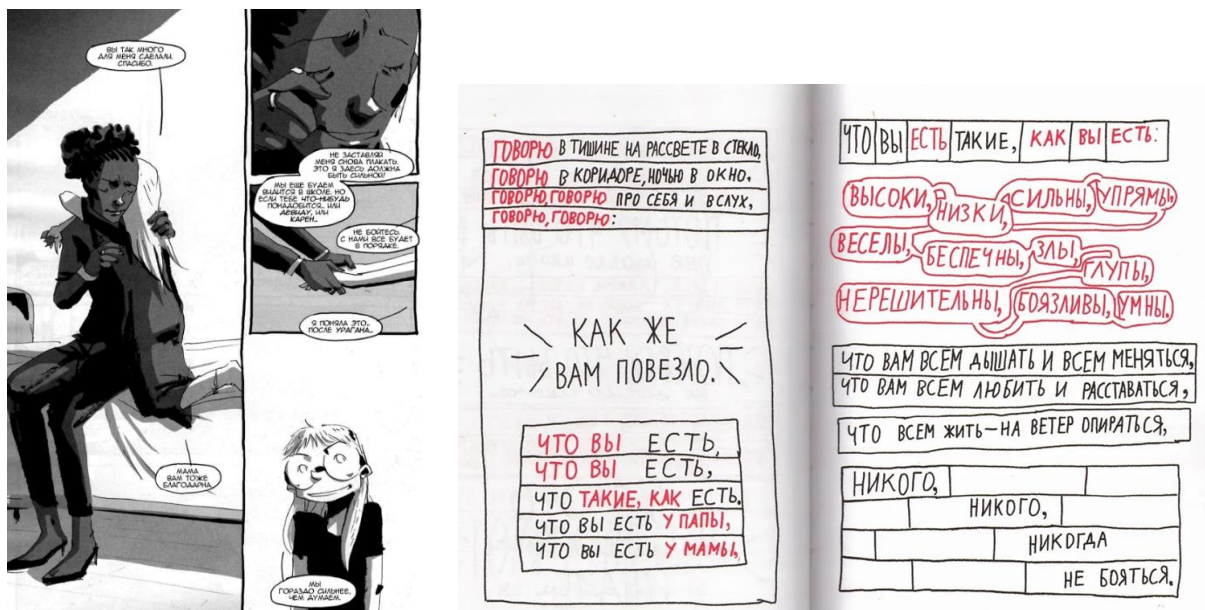 ВЫ ТАК МНОГО
ДЛЯ МЕНЯ СДЕЛАЛИ.
СПАСИБО.
МАМА
ВАМ ТОЖЕ
БЛАГОДАРНА.
НЕ ЗАСТАВЛЯЙ
МЕНЯ СНОВА ПЛАКАТЬ.
ЭТО Я ЗДЕСЬ ДОЛЖНА
БЫТЬ СИЛЬНОЙ!
МЫ ЕЩЕ БУДЕМ
ВИДИТСЯ В ШКОЛЕ, НО
ЕСЛИ ТЕБЕ ЧТО-НИБУДЬ
ПОНАДОБИТСЯ... ИЛИ
ДЕВИДУ, ИЛИ
КАРЕН...
НЕ БОЙТЕСЬ.
С НАМИ ВСЕ БУДЕТ
В ПОРЯДКЕ.
Я ПОНЯЛА ЭТО...
ПОСЛЕ УРАГАНА...
МЫ
ГОРАЗДО СИЛЬНЕЕ,
ЧЕМ ДУМАЕМ.
ГОВОРЮ В ТИШИНЕ НА РАССВЕТЕ В СТЕКЛО,
ГОВОРЮ В КОРИДОРЕ, НОЧЬЮ В ОКНО,
ГОВОРЮ, ГОВОРЮ ПРО СЕБЯ И ВСЛУХ,
ГОВОРЮ, ГОВОРЮ:
КАК ЖЕ
ВАМ ПОВЕЗЛО.
ЧТО ВЫ ЕСТЬ,
ЧТО ВЫ ЕСТЬ,
ЧТО ТАКИЕ, КАК ЕСТЬ.
ЧТО ВЫ ЕСТЬ У ПАПЫ,
ЧТО ВЫ ЕСТЬ У МАМЫ,
ЧТО ВЫ ЕСТЬ ТАКИЕ, КАК ВЫ ЕСТЬ:
ВЫСОКИ, НИЗКИ, СИЛЬНЫ, УПРЯМЫ,
ВЕСЕЛЫ, БЕСПЕЧНЫ, ЗЛЫ, ГЛУПЫ,
НЕРЕШИТЕЛЬНЫ, БОЯЗЛИВЫ, УМНЫ.
ЧТО ВАМ ВСЕМ ДЫШАТЬ И ВСЕМ МЕНЯТЬСЯ,
ЧТО ВАМ ВСЕМ ЛЮБИТЬ И РАССТАВАТЬСЯ,
ЧТО ВСЕМ ЖИТЬ — НА ВЕТЕР ОПИРАТЬСЯ,
НИКОГО,
НИКОГО,
НИКОГДА
НЕ БОЯТЬСЯ.